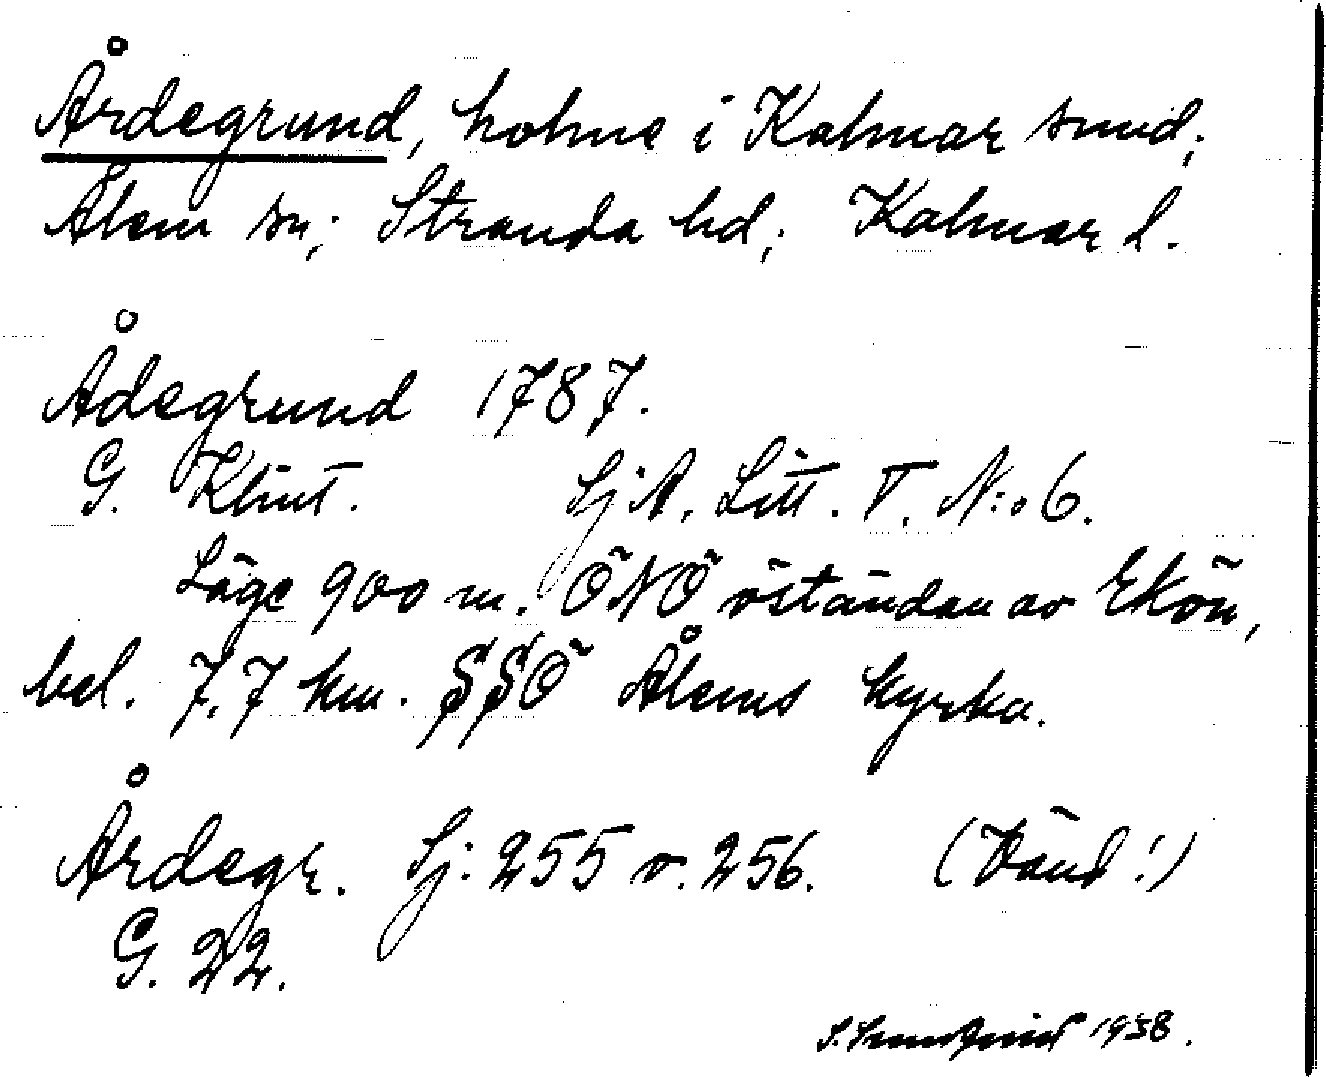 Årdegrund, holme i Kalmar sund;
Ålem sn; Stranda hd; Kalmar l.
Ådegrund 1787.
G. Klint. SjA. Litt. T. N:o 6.
Läge 900 m. ÖNÖ öständan av Ekön,
bel. 7,7 km. SSÖ Ålems kyrka.
Årdegr. Sj: 255 v. 256. (Vänd!)
G. 22.
1938.